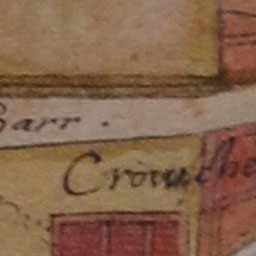 Barr.
Crouche